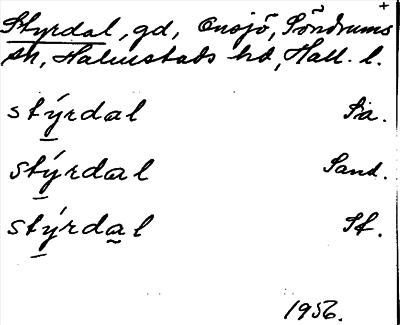 +
Styrdal, gd, Onsjö, Söndrums
sn, Halmstads hd, Hall. l.
stýrdal Sa.
stýrdal Sand.
stýrdal Sf.
1956.